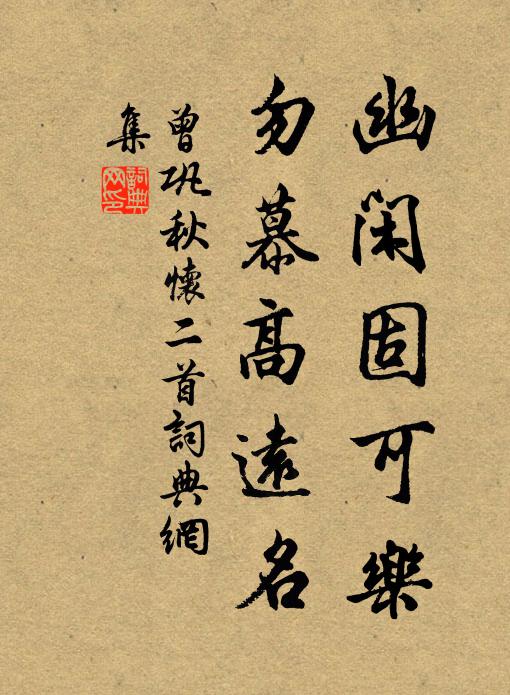 幽閑固可樂
勿慕高遠名
曾巩秋懷二首詞典網
集
詞典
网印